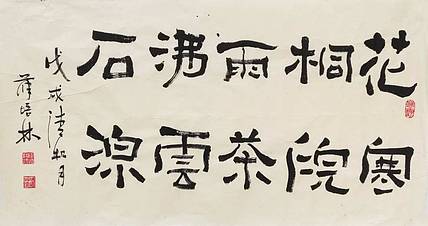 花寒
桐院
雨茶
沸雲
石源
戊戌清和月
薛培林